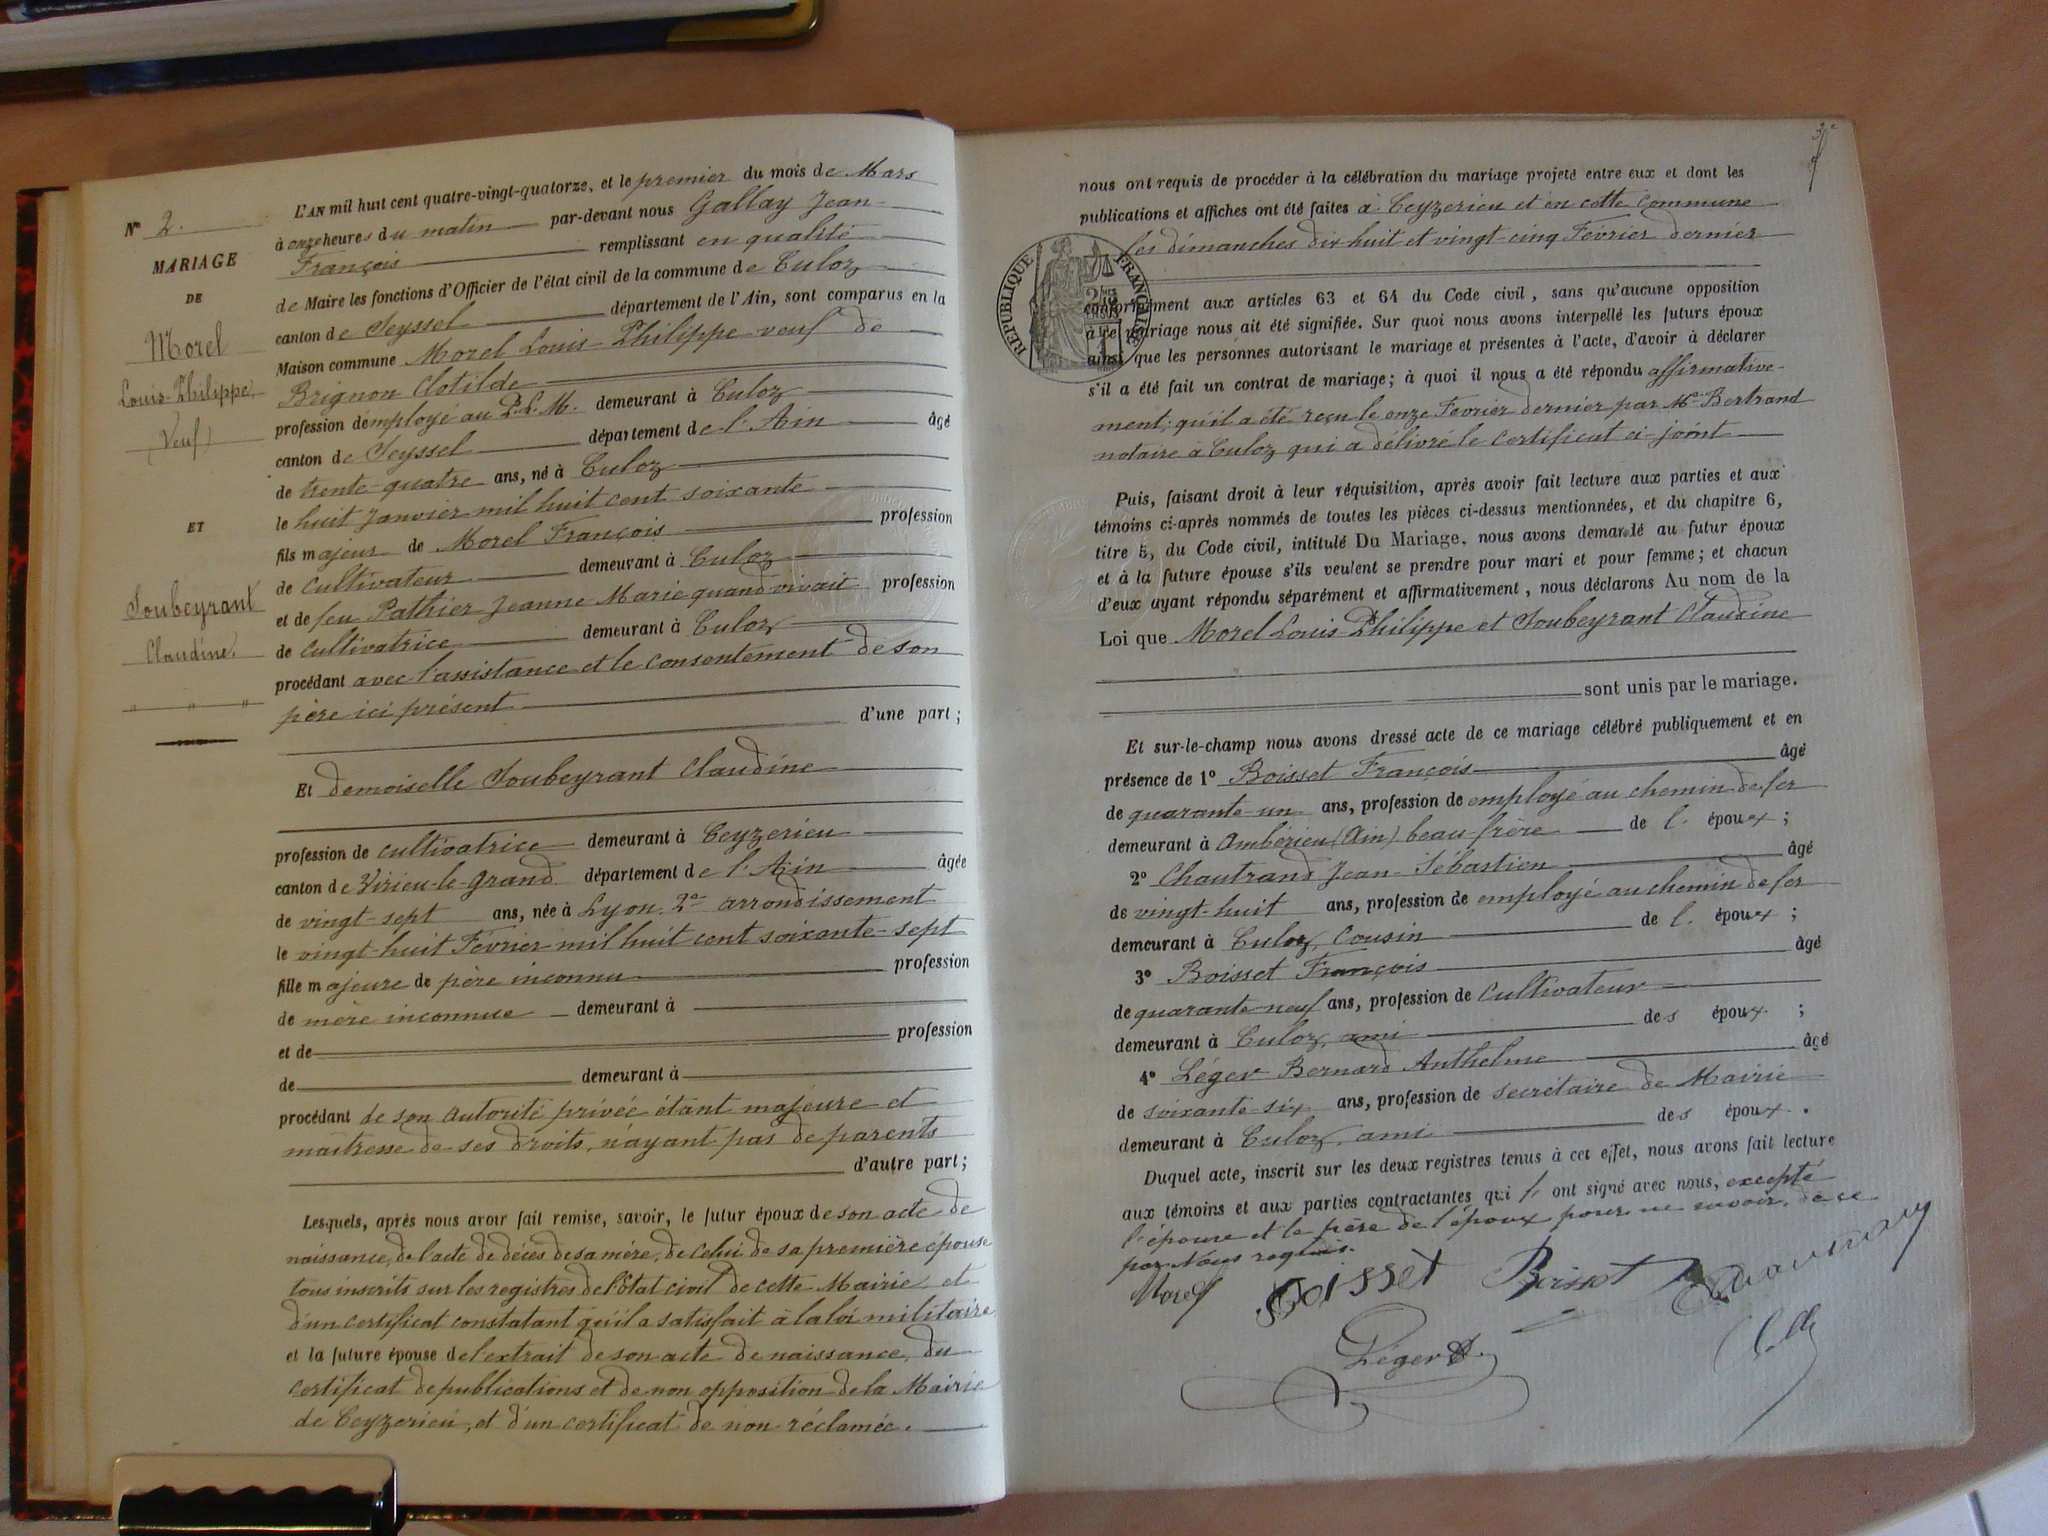 N° 2.
MARIAGE
DE
Morel
Louis-Philippe
(Veuf)
ET
Soubeyrant
Claudine.
" " "
L'AN mil huit cent quatre-vingt-quatorze, et le premier du mois de Mars
à onze heures du matin par-devant nous Gallay Jean-
François remplissant en qualité
de Maire les fonctions d'Officier de l'état civil de la commune de Culoz
canton de Seyssel département de l'Ain, sont comparus en la
Maison commune Morel Louis-Philippe veuf de
Brignon Clotilde
profession d'employé au P.L.M. demeurant à Culoz
canton de Seyssel département de l'Ain âgé
de trente-quatre ans, né à Culoz
le huit Janvier mil huit cent soixante
fils majeur de Morel François profession
de cultivateur demeurant à Culoz
et de feu Pathier Jeanne Marie quand vivait profession
de cultivatrice demeurant à Culoz
procédant avec l'assistance et le consentement de son
père ici présent
d'une part;
Et demoiselle Soubeyrant Claudine
profession de cultivatrice demeurant à Ceyzerieu
canton de Virieu-le-Grand département de l'Ain âgée
de vingt-sept ans, née à Lyon 2e arrondissement
le vingt-huit Février mil huit cent soixante-sept
fille majeure de père inconnu profession
de mère inconnue demeurant à
et de profession
de demeurant à
procédant de son autorité privée étant majeure et
maîtresse de ses droits, n'ayant pas de parents
d'autre part;
Lesquels, après nous avoir fait remise, savoir, le futur époux de son acte de
naissance, de l'acte de décès de sa mère, de celui de sa première épouse
tous inscrits sur les registres de l'Etat civil de cette Mairie et
d'un certificat constatant qu'il a satisfait à la loi militaire
et la future épouse de l'extrait de son acte de naissance, du
certificat de publications et de non opposition de la Mairie
de Ceyzerieu, et d'un certificat de non réclamée.
nous ont requis de procéder à la célébration du mariage projeté entre eux et dont les
publications et affiches ont été faites à Ceyzerieu et en cette commune
les dimanches dix-huit et vingt-cinq Février dernier
RÉPUBLIQUE FRANÇAISE
conformément aux articles 63 et 64 du Code civil, sans qu'aucune opposition
à ce mariage nous ait été signifiée. Sur quoi nous avons interpellé les futurs époux
ainsi que les personnes autorisant le mariage et présentes à l'acte, d'avoir à déclarer
s'il a été fait un contrat de mariage; à quoi il nous a été répondu affirmative-
ment; qu'il a été reçu le onze Février dernier par Me Bertrand
notaire à Culoz qui a délivré le certificat ci-joint
Puis, faisant droit à leur réquisition, après avoir fait lecture aux parties et aux
témoins ci-après nommés de toutes les pièces ci-dessus mentionnées, et du chapitre 6,
titre 5, du Code civil, intitulé Du Mariage, nous avons demandé au futur époux
et à la future épouse s'ils veulent se prendre pour mari et pour femme; et chacun
d'eux ayant répondu séparément et affirmativement, nous déclarons Au nom de la
Loi que Morel Louis-Philippe et Soubeyrant Claudine
sont unis par le mariage.
Et sur-le-champ nous avons dressé acte de ce mariage célébré publiquement et en
présence de 1° Boisset François âgé
de quarante-un ans, profession de employé au chemin de fer
demeurant à Ambérieu (Ain) beau-frère de l'époux;
2° Chautrand Jean-Sébastien âgé
de vingt-huit ans, profession de employé au chemin de fer
demeurant à Culoz, Cousin de l'époux;
3° Boisset François âgé
de quarante-neuf ans, profession de Cultivateur
demeurant à Culoz, ami des époux;
4° Léger Bernard Anthelme âgé
de soixante-six ans, profession de secrétaire de Mairie
demeurant à Culoz, ami des époux.
Duquel acte, inscrit sur les deux registres tenus à cet effet, nous avons fait lecture
aux témoins et aux parties contractantes qui l'ont signé avec nous, excepté
l'épouse et le père de l'époux pour ne savoir, de ce
par Nous requis.
Morel Boisset Boisset
Léger